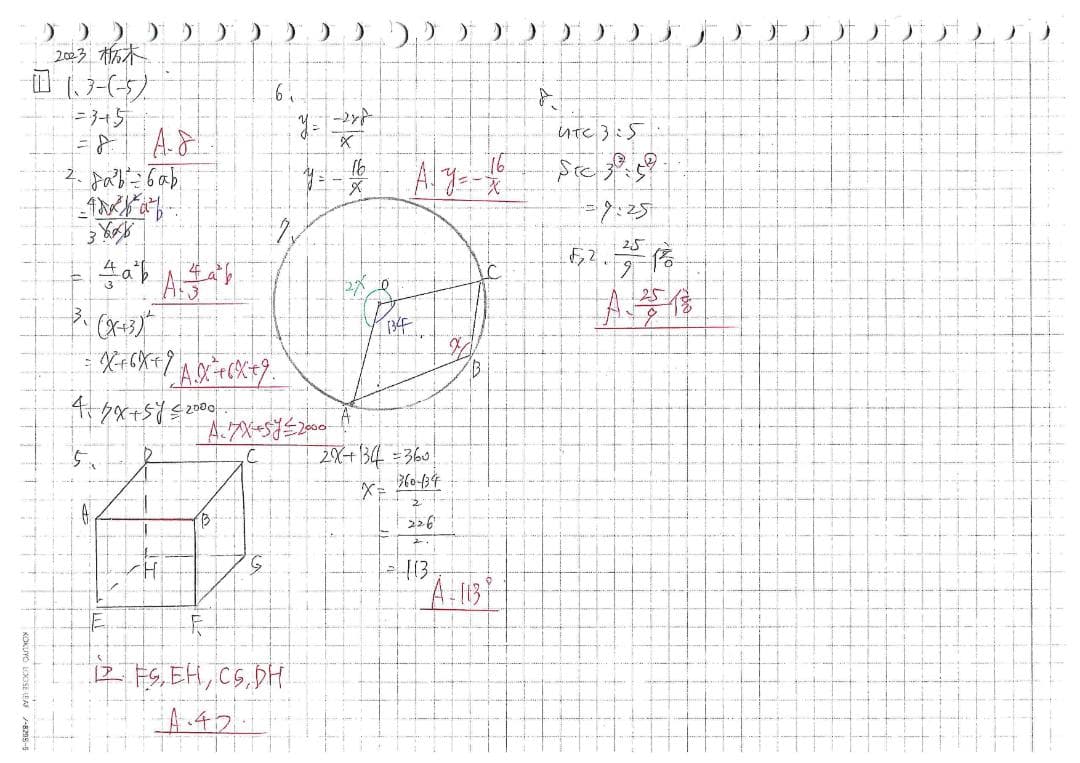 2023 栃木
1
1、3-(-5)
=3+5
=8
A.8
2、8a³b²÷6ab
= 4 8a³b² a²b
3 6ab
= 4/3 a²b
A. 4/3 a²b
3、(x+3)²
= x²+6x+9
A.x²+6x+9.
4、7x+5y≦2000
A.7x+5y≦2000
5、
D C
A B
H G
E F
FG, EH, CG, DH
A.4つ
6、
y= -2×8/x
y=- 16/x
A. y=- 16/x
7、
2x O C
134
x B
A
2x+134=360
x= 360-134/2
= 226/2
=113
A.113°
8、
相似比 3:5
面積比 3²:5²
=9:25
よって、 25/9 倍
A. 25/9 倍
KOKUYO LOOSE-LEAF